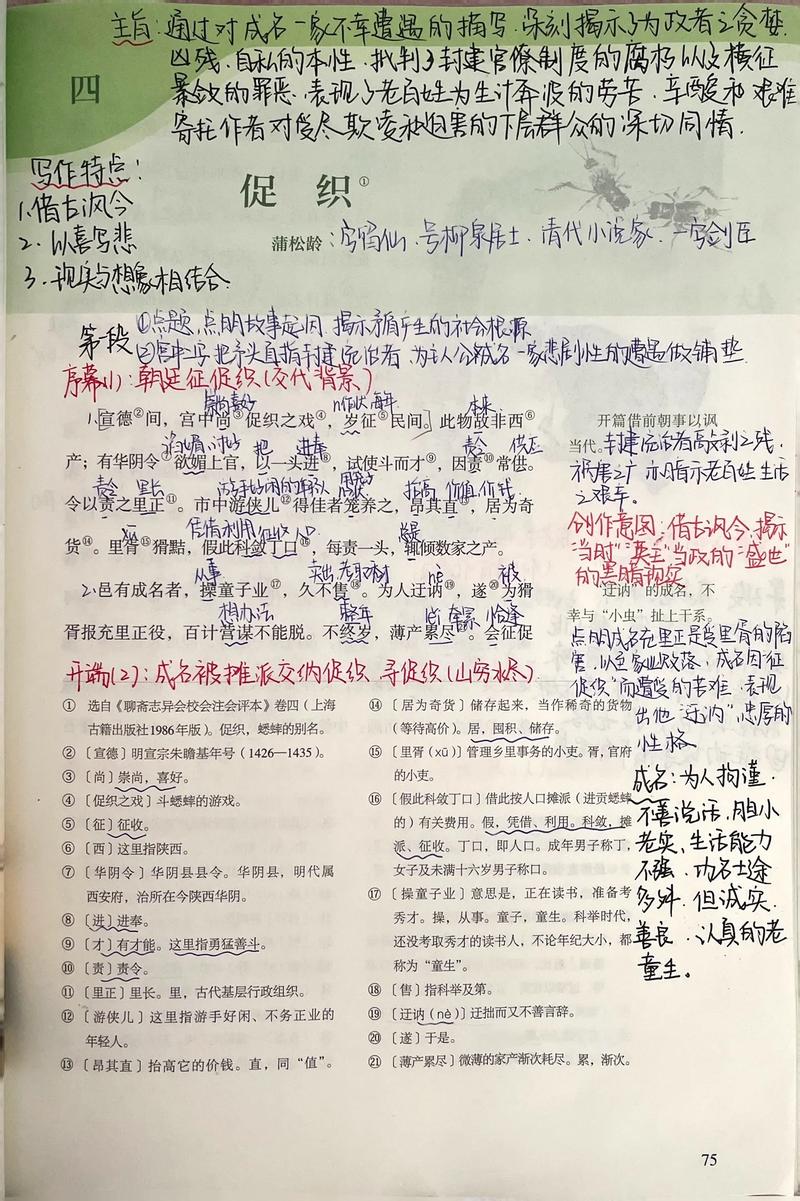 主旨:通过对成名一家不幸遭遇的描写,深刻揭示了为政者之贪婪
凶残、自私的本性,批判了封建官僚制度的腐朽以及横征
暴敛的罪恶,表现了老百姓为生计奔波的劳苦、辛酸和艰难
寄托作者对受尽欺凌和迫害的下层群众的深切同情.
四
写作特点:
1.借古讽今
2.以喜写悲
3.现实与想象相结合.
促 织①
蒲松龄:字留仙、号柳泉居士、清代小说家、一字剑臣
第一段
①点题,点明故事起因,揭示矛盾产生的社会根源
把矛头直指封建统治者,为主人公成名一家悲剧性的遭遇做铺垫
序幕(1):朝廷征促织(交代背景)
崇尚喜好
本来
1.宣德②间,宫中尚③促织之戏④,岁征⑤民间。此物故非西⑥
把 进奉
责令 供应
产;有华阴令⑦欲媚上官,以一头进⑧,试使斗而才⑨,因责⑩常供。
责令 里长
抬高
令以责之里正⑪。市中游侠儿⑫得佳者笼养之,昂其直⑬,居为奇
凭借利用
货⑭。里胥⑮猾黠,假此科敛丁口⑯,每责一头,辄倾数家之产。
从事
nè
被
2.邑有成名者,操童子业⑰,久不售⑱。为人迂讷⑲,遂⑳为猾
想办法
恰逢
胥报充里正役,百计营谋不能脱。不终岁,薄产累尽㉑。会征促
开端(2):成名被摊派交纳促织,寻促织(山穷水尽)
开篇借前朝事以讽
当代。
封建统治者高敛剥之残、
祸害之广,亦揭示老百姓生活
之艰辛。
创作意图:借古讽今,揭示
“当时”“英主”当政的“盛世”
的黑暗现实
“迂讷”的成名,不
幸与“小虫”扯上干系。
点明成名充里正是受里胥的陷
害,以至家业败落,成名因征
促织而遭受的苦难,表现
出他“迂讷”忠厚的
性格
成名:为人拘谨、
不善说话,胆小
老实、生活能力
不强、功名仕途
多舛,但诚实、
善良、认真的老
童生。
① 选自《聊斋志异会校会注会评本》卷四(上海
古籍出版社1986年版)。促织,蟋蟀的别名。
②〔宣德〕明宣宗朱瞻基年号(1426—1435)。
③〔尚〕崇尚,喜好。
④〔促织之戏〕斗蟋蟀的游戏。
⑤〔征〕征收。
⑥〔西〕这里指陕西。
⑦〔华阴令〕华阴县县令。华阴县,明代属
西安府,治所在今陕西华阴。
⑧〔进〕进奉。
⑨〔才〕有才能。这里指勇猛善斗。
⑩〔责〕责令。
⑪〔里正〕里长。里,古代基层行政组织。
⑫〔游侠儿〕这里指游手好闲、不务正业的
年轻人。
⑬〔昂其直〕抬高它的价钱。直,同“值”。
⑭〔居为奇货〕储存起来,当作稀奇的货物
(等待高价)。居,囤积、储存。
⑮〔里胥(xū)〕管理乡里事务的小吏。胥,官府
的小吏。
⑯〔假此科敛丁口〕借此按人口摊派(进贡蟋蟀
的)有关费用。假,凭借、利用。科敛,摊
派、征收。丁口,即人口。成年男子称丁,
女子及未满十六岁男子称口。
⑰〔操童子业〕意思是,正在读书,准备考
秀才。操,从事。童子,童生。科举时代,
还没考取秀才的读书人,不论年纪大小,都
称为“童生”。
⑱〔售〕指科举及第。
⑲〔迂讷(nè)〕迂拙而又不善言辞。
⑳〔遂〕于是。
㉑〔薄产累尽〕微薄的家产渐次耗尽。累,渐次。
75